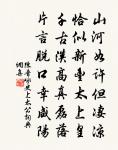 山河如許但凄涼
恰似新豐太上皇
千古漢高真磊落
片言脫口幸咸陽
陳普咏史上太公詞典